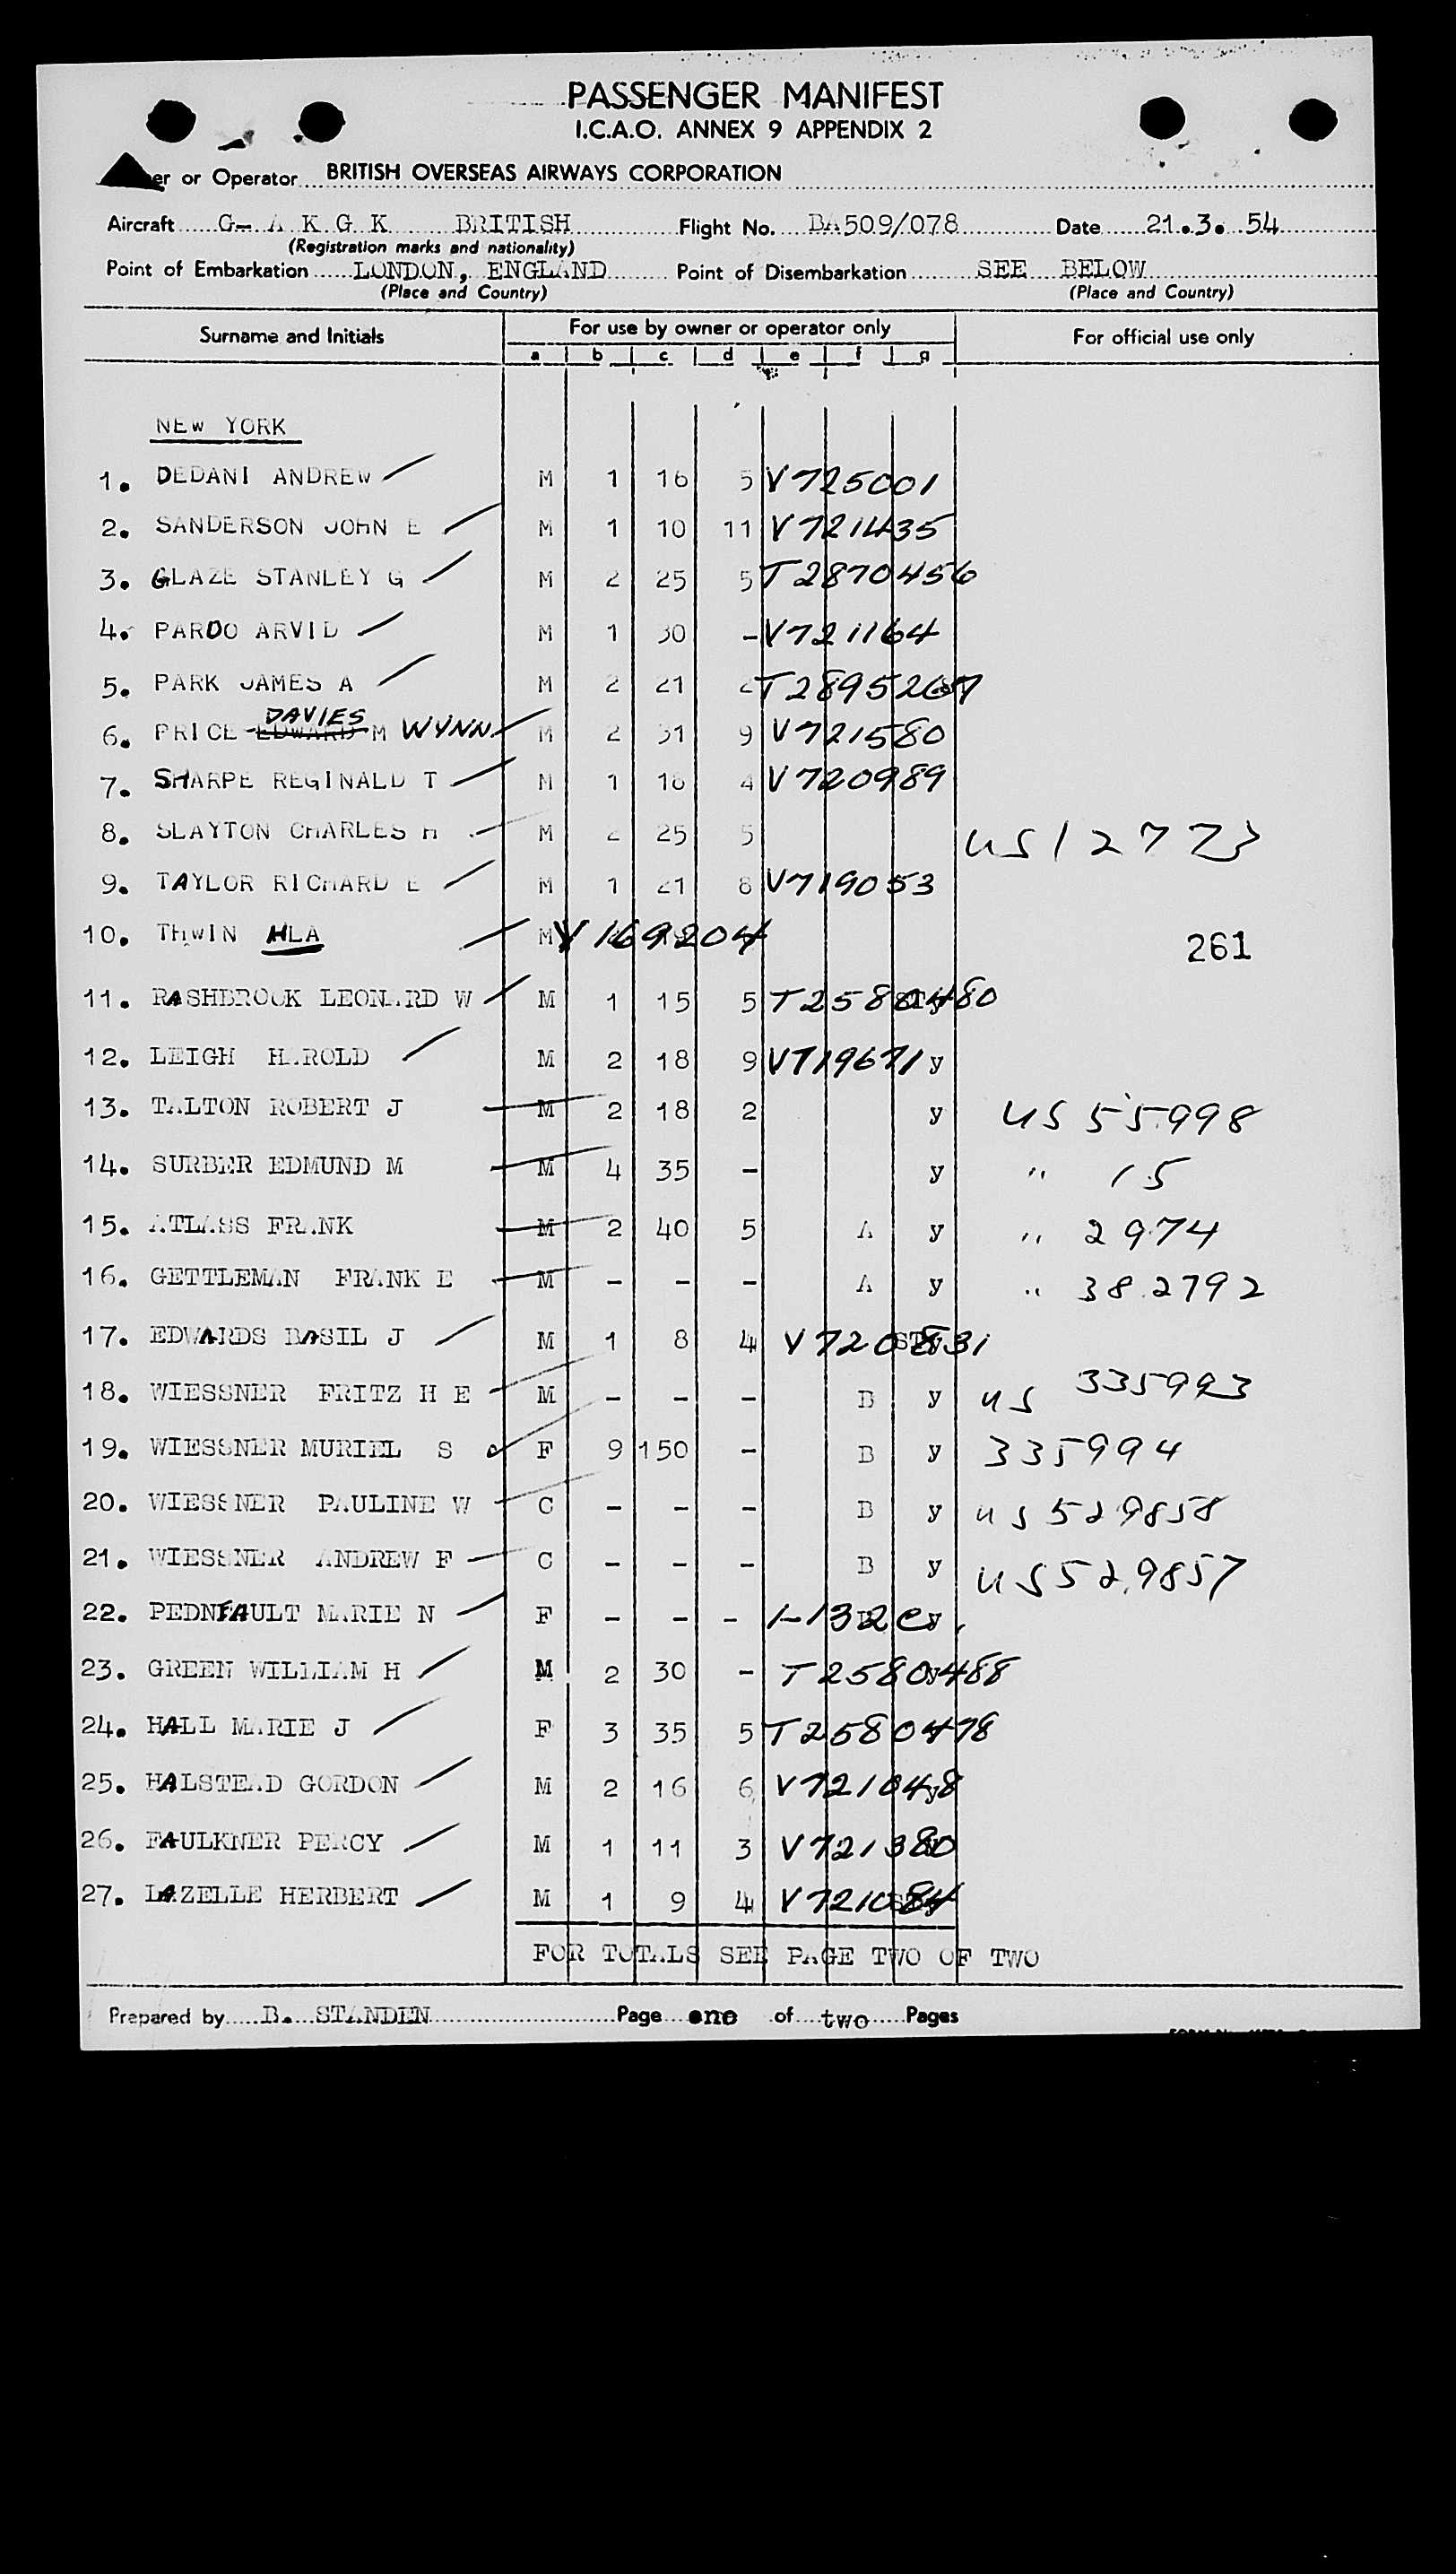 PASSENGER MANIFEST
I.C.A.O. ANNEX 9 APPENDIX 2
er or Operator BRITISH OVERSEAS AIRWAYS CORPORATION
Aircraft G- A K G K BRITISH Flight No. BA509/078 Date 21.3.54
(Registration marks and nationality)
Point of Embarkation LONDON, ENGLAND Point of Disembarkation SEE BELOW
(Place and Country) (Place and Country)
Surname and Initials For use by owner or operator only For official use only
a b c d e f g
NEW YORK
1. DEDANI ANDREW M 1 16 5 V725001
2. SANDERSON JOHN E M 1 10 11 V721435
3. GLAZE STANLEY G M 2 25 5 T2870456
4. PARDO ARVID M 1 30 - V721164
5. PARK JAMES A M 2 21 2 T2895267
DAVIES
6. PRICE EDWARD M WYNN M 2 31 9 V721580
7. SHARPE REGINALD T M 1 18 4 V720989
8. SLAYTON CHARLES H M 2 25 5 US12773
9. TAYLOR RICHARD E M 1 21 8 V719053
10. THWIN HLA M V169204 261
11. RASHBROOK LEONARD W M 1 15 5 T2580480
12. LEIGH HAROLD M 2 18 9 V719671 y
13. TALTON ROBERT J M 2 18 2 y US 55998
14. SURBER EDMUND M M 4 35 - y " 15
15. ATLASS FRANK M 2 40 5 A y " 2974
16. GETTLEMAN FRANK E M - - - A y " 382792
17. EDWARDS BASIL J M 1 8 4 V720831
18. WIESSNER FRITZ H E M - - - B y US 335993
19. WIESSNER MURIEL S F 9 150 - B y 335994
20. WIESSNER PAULINE W C - - - B y US 529858
21. WIESSNER ANDREW F C - - - B y US529857
22. PEDNEAULT MARIE N F - - - 1-132
23. GREEN WILLIAM H M 2 30 - T2580488
24. HALL MARIE J F 3 35 5 T2580478
25. HALSTEAD GORDON M 2 16 6 V721048
26. FAULKNER PERCY M 1 11 3 V721380
27. LAZELLE HERBERT M 1 9 4 V721084
FOR TOTALS SEE PAGE TWO OF TWO
Prepared by B. STANDEN Page one of two Pages